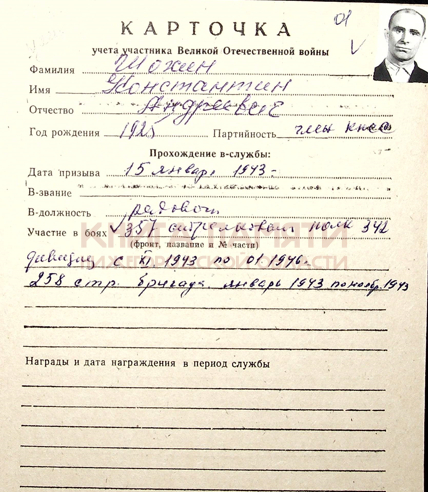 01
КАРТОЧКА
учета участника Великой Отечественной войны
Фамилия Шохин
Имя Константин
Отчество Андреевич
Год рождения 1925 Партийность член КПСС
Прохождение в-службы:
Дата призыва 15 январь 1943-
В-звание
В-должность рядовой
Участие в боях 357 стрелковый полк 342
(фронт, название и № части)
КНИГА ПАМЯТИ
НИЖЕГОРОДСКОЙ ОБЛАСТИ
дивизии с XI 1943 по 01 1946.
258 стр. бригада январь 1943 по ноябр. 1943
Награды и дата награждения в период службы